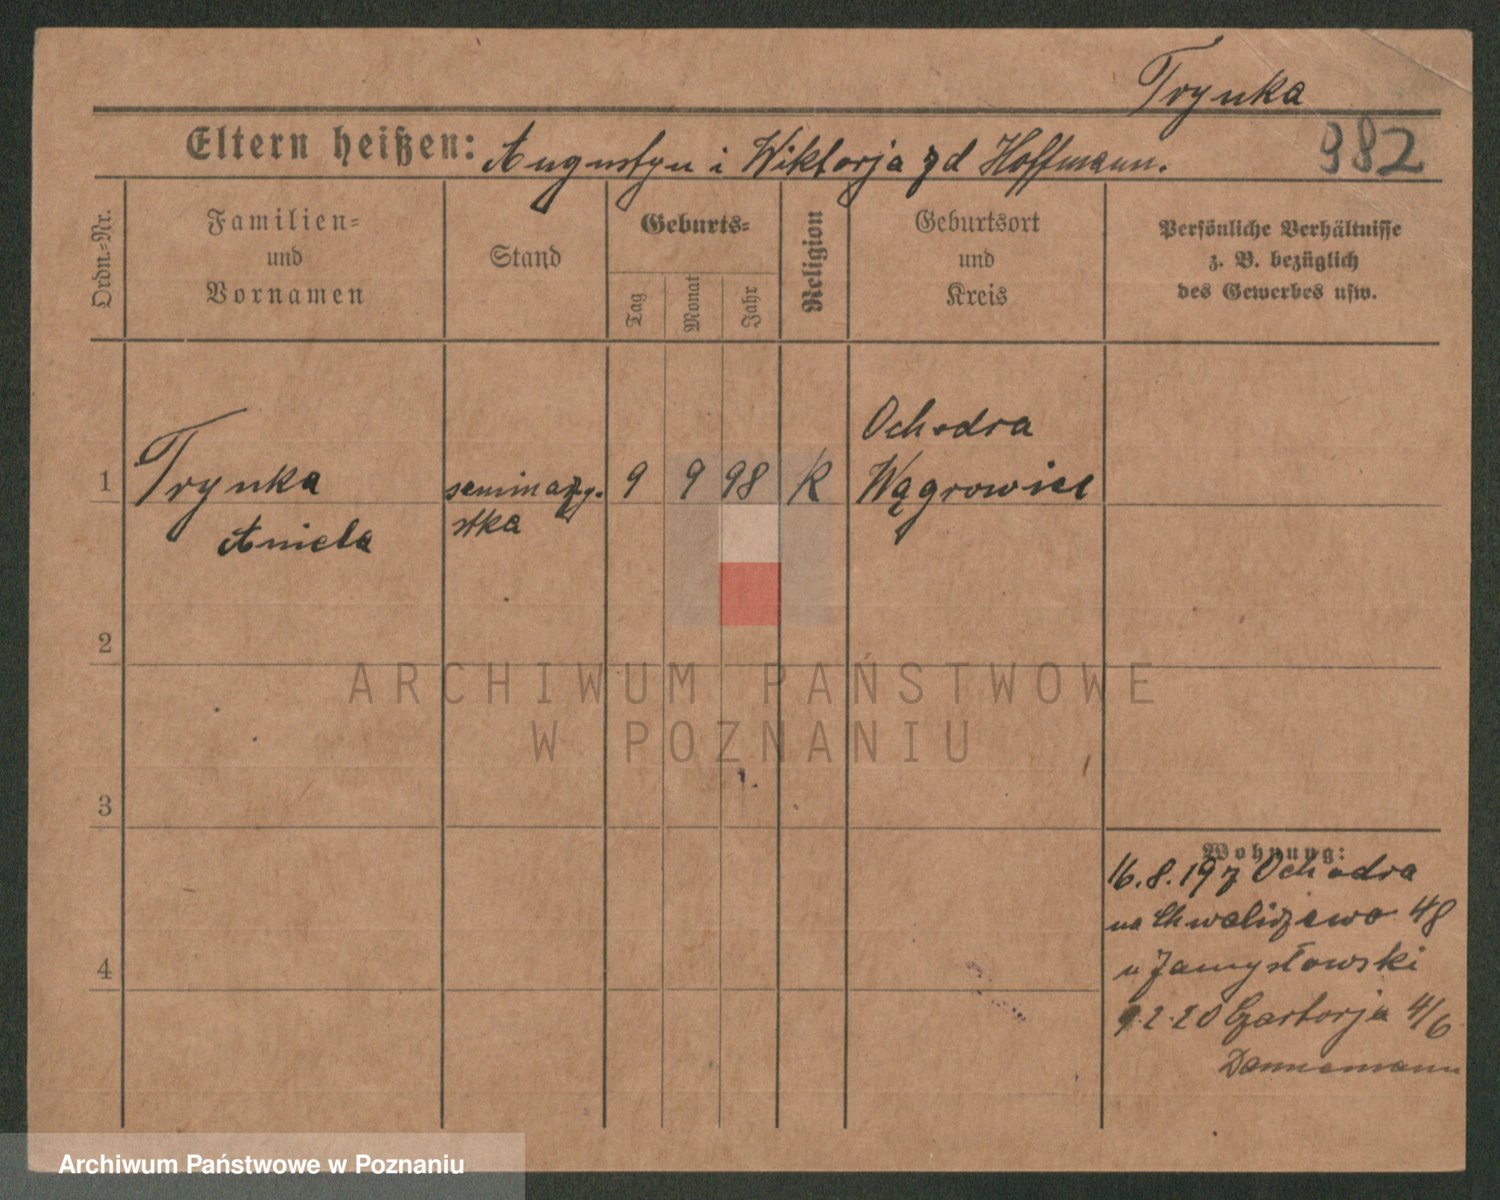 Trynka
Eltern heißen: Augustyn i Wiktorja zd Hoffmann.
982
Ordn.-Nr.
Familien- und Vornamen
Stand
Geburts-
Tag
Monat
Jahr
Religion
Geburtsort und Kreis
Persönliche Verhältnisse
z. B. bezüglich
des Gewerbes usw.
Ochodra
1 Trynka seminarzy- 9 9 98 K Wągrowiec
Aniela stka
2
ARCHIWUM PAŃSTWOWE
W POZNANIU
3
Wohnung:
16.8.19 z Ochodra
na Chwaliszewo 48
u Zamysłowski
4
9.2.20 Czartorja 4/6
Dannemann
Archiwum Państwowe w Poznaniu